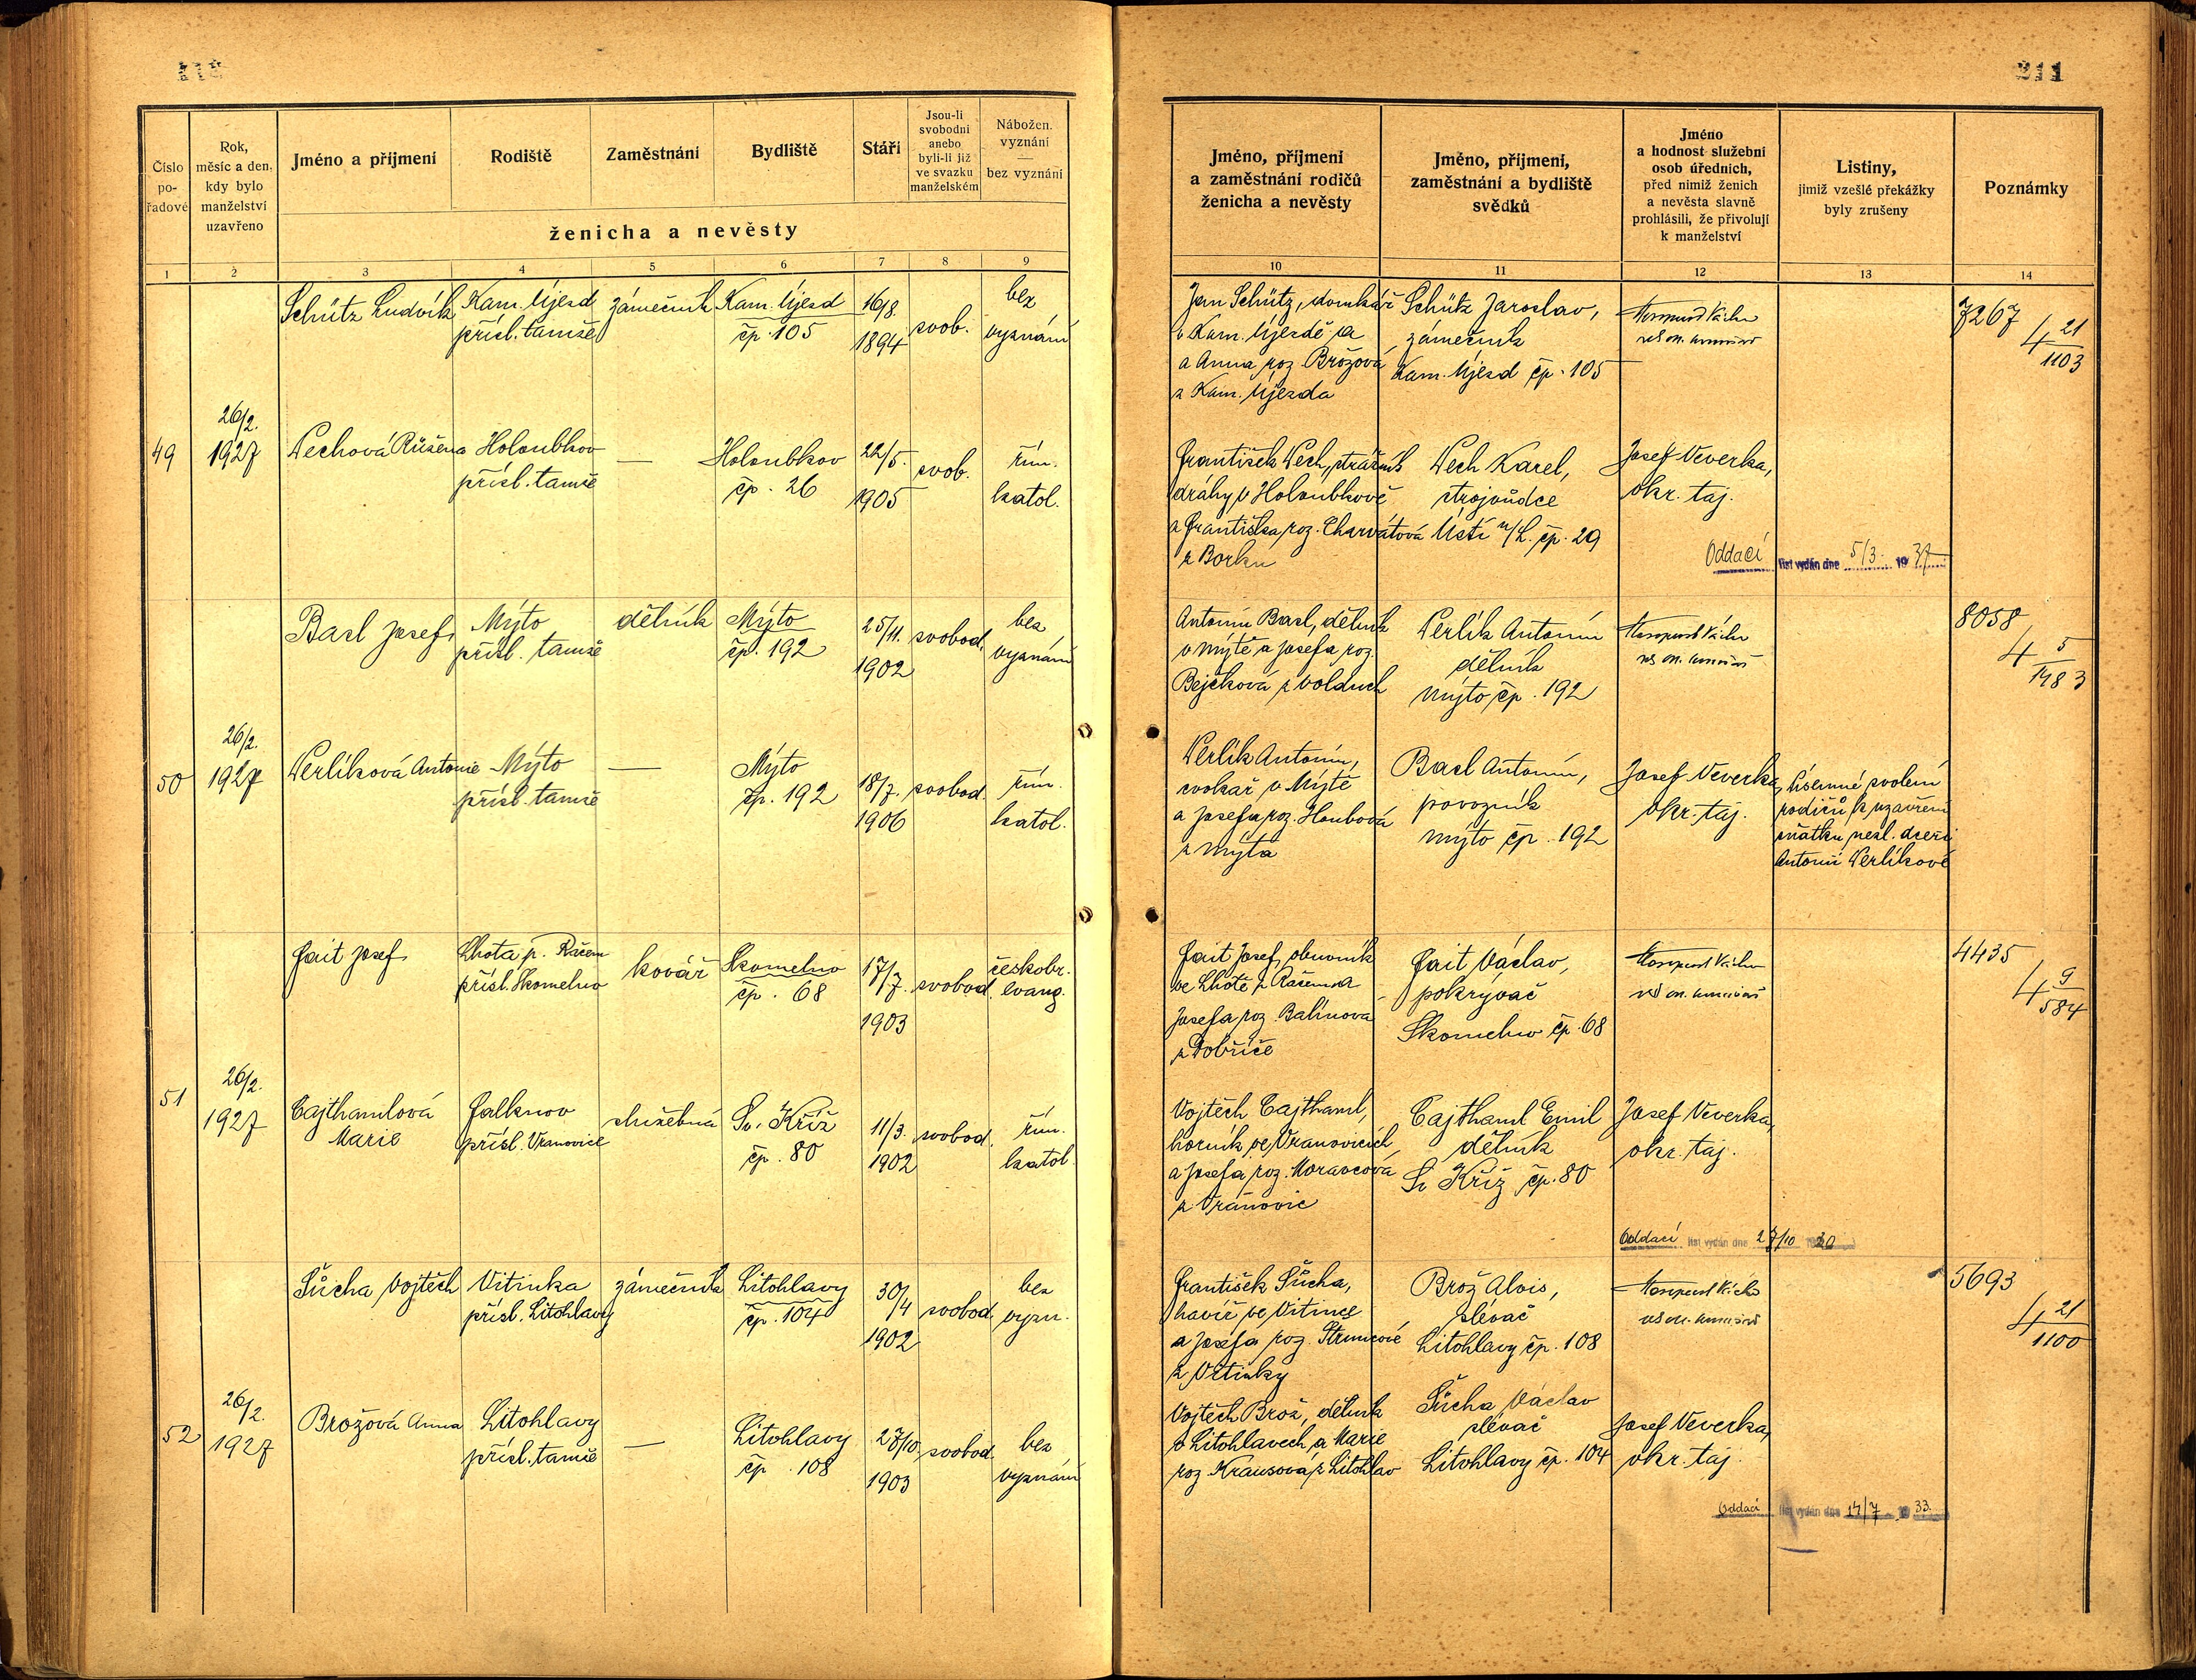 211
Číslo
po-
řadové
Rok,
měsíc a den,
kdy bylo
manželství
uzavřeno
Jméno a příjmení
Rodiště
Zaměstnání
Bydliště
Stáří
Jsou-li
svobodni
anebo
byli-li již
ve svazku
manželském
Nábožen.
vyznání
—
bez vyznání
ženicha a nevěsty
Jméno, příjmení
a zaměstnání rodičů
ženicha a nevěsty
Jméno, příjmení,
zaměstnání a bydliště
svědků
Jméno
a hodnost služební
osob úředních,
před nimiž ženich
a nevěsta slavně
prohlásili, že přivolují
k manželství
Listiny,
jimiž vzešlé překážky
byly zrušeny
Poznámky
1 2 3 4 5 6 7 8 9
10 11 12 13 14
Schütz Ludvík
Kam. Újezd
přísl. tamže
zámečník
Kam. Újezd
čp 105
16/8.
1894
svob.
bez
vyznání
Jan Schütz, domkář
v Kam. Újezdě
a Anna roz. Brožová
z Kam. Újezda
Schütz Jaroslav,
zámečník
Kam. Újezd čp. 105
7267
4 21
1103
49
26/2.
1927
Wechová Růžena
Holoubkov
přísl. tamže
—
Holoubkov
čp. 26
22/5.
1905
svob.
řím.
katol.
František Wech, strážník
dráhy v Holoubkově
a Františka roz. Charvátová
z Borku
Wech Karel,
strojvůdce
Ústí n/L. čp. 29
Josef Veverka,
okr. taj.
Oddací list vydán dne 5/3. 1937
Basl Josef
Mýto
přísl. tamže
dělník
Mýto
čp. 192
25/11.
1902
svobod.
bez
vyznání
Antonín Basl, dělník
v Mýtě a Josefa roz.
Bejčková z Volduch
Verlík Antonín
dělník
Mýto čp. 192
8058
4 5
1483
50
26/2.
1927
Verlíková Antonie
Mýto
přísl. tamže
—
Mýto
čp. 192
18/7.
1906
svobod.
řím.
katol.
Verlík Antonín,
cvokař v Mýtě
a Josefa roz. Houbová
z Mýta
Basl Antonín,
povozník
Mýto čp. 192
Josef Veverka,
okr. taj.
Písemné svolení
rodičů k uzavření
sňatku nezl. dceři
Antonii Verlíkové
Fait Josef
Lhota p. Račem
přísl. Skomelno
kovář
Skomelno
čp. 68
17/7.
1903
svobod.
českobr.
evang.
Fait Josef, obuvník
ve Lhotě p. Račem a
Josefa roz. Balínová
z Dobříče
Fait Václav,
pokrývač
Skomelno čp. 68
4435
4 9
584
51
26/2.
1927
Cajthamlová
Marie
Falknov
přísl. Vranovice
služebná
Sv. Kříž
čp. 80
11/3.
1902
svobod.
řím.
katol.
Vojtěch Cajthaml,
horník ve Vranovicích
a Josefa roz. Moravcová
z Vranovic
Cajthaml Emil
dělník
Sv Kříž čp. 80
Josef Veverka,
okr. taj.
Oddací list vydán dne 27/10 30
Šůcha Vojtěch
Vitinka
přísl. Litohlavy
zámečník
Litohlavy
čp. 104
30/4
1902
svobod.
bez
vyzn.
František Šůcha,
havíř ve Vitince
a Josefa roz. Strnncové
z Vitinky
Brož Alois,
slévač
Litohlavy čp. 108
5693
4 21
1100
52
26/2.
1927
Brožová Anna
Litohlavy
přísl. tamže
—
Litohlavy
čp. 108
27/10.
1903
svobod.
bez
vyznání
Vojtěch Brož, dělník
v Litohlavech a Marie
roz. Krausová z Litohlav
Šůcha Václav
slévač
Litohlavy čp. 104
Josef Veverka,
okr. taj.
Oddací list vydán dne 14/7 1933.